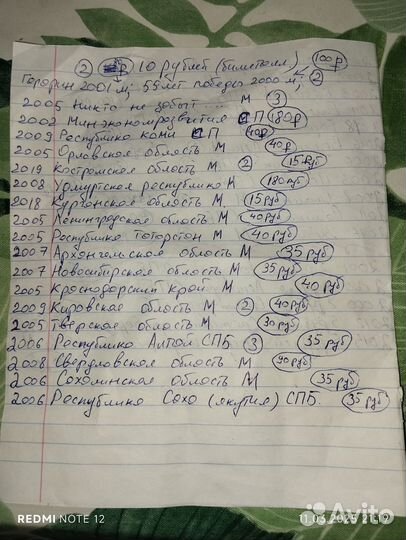 ② 10 рублей (биметалл) 100р
Гагарин 2001 м; 55 лет победы 2000 м, 2
2005 Никто не забыт .... М 3
2002 Минэкономразвития СП 180р
2009 Республика Коми СП 40р
2005 Орловская область М 40р
2019 Костромская область М. 2 15 руб
2008 Удмуртская республика М 180 руб
2018 Курганская область М. 15 руб
2005 Ленинградская область М 40 руб
2005 Республика Татарстан М 40 руб
2007 Архангельская область М 35 руб
2007 Новосибирская область М 35 руб
2005 Краснодарский край М 40 руб
2009 Кировская область М 2 40 руб
2005 Тверская область М 30 руб
2006 Республика Алтай СПБ 3 35 руб
2008 Свердловская область М
2006 Сахалинская область М 35 руб
2006 Республика Саха (якутия) СПБ 35 руб
REDMI NOTE 12
11.03.2025 21:19
Avito